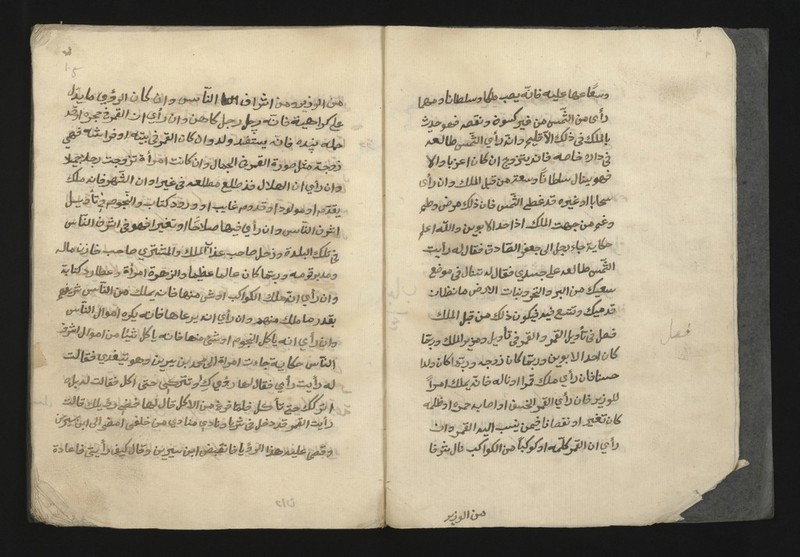 وشعاعها عليه فانه يصيب ملكا وسلطانا ومهما
رأى من الشمس من غير كسوف ونقص فهو حدث
بالملك في ذلك الاقليم وان رأى الشمس طالعه
في داره خاصه فانه يتزوج ان كان اعزبا والا
فهو ينال سلطانا وسعة من قبل الملك وان رأى
سحابا او غيره قد غطى الشمس فان ذلك مرض وهم
وغم من جهت الملك اذا احد الابوين والله اعلم
حكاية جاء رجل الى جعفر الصادق فقال له رأيت
الشمس طالعه على جسدي فقال له تنال في موضع
سعيك من البر والتمر ونبات الارض ما تطان
قدميك وتتسع فيه فيكون ذلك من قبل الملك
فصل في تأويل القمر والقمر في تأويل وزير الملك وربما
كان احد الابوين وربما كان زوجه وربما كان ولدا
حسنا فان رأى ملك قمرا او ناله فانه يملك امرا
للوزير فان رأى القمر
كان تغير او نقصانا فيمن ينسب اليه القمر وان
رأى ان القمر كلمه او كوكبا من الكواكب نال شرفا
من الوزير
فصل
من الوزير ومن اشراف الناس وان كان الرؤيا ما يدل
على كراهية فانه رجل كاهن وان رأى ان القمر في حجره او قد
حله بيده فانه يستفيد ولد وان كان القمر في بيته او فراشه فهي
زوجة مثل صورة القمر في الجمال وان كانت امرأة تزوجت رجلا جميلا
وان رأى ان الهلال قد طلع مطلعه في غير اوان الشهر فانه ملك
يقدم او مولود او قدوم غايب او ورود كتاب والنجوم في تأويل
اشرف الناس وان رأى فيها صلاحا او تغيرا فهو في اشرف الناس
في تلك البلدة وزحل صاحب عذاب الملك والمشتري صاحب خازن ماله
ومدبر قومه وربما كان عالما عظيما والزهرة امرأة وعطارد كتابة
وان رأى انه ملك الكواكب او شئ منها فانه يملك من الناس
بقدر ما ملك منهم وان رأى انه يرعاها فانه يكره اموال الناس
وان رأى انه ياكل النجوم او شئ منها فانه ياكل شيئا من اموال اشرف
الناس حكاية جاءت امرأة الى محمد بن سيرين وهو يتغدى فقالت
له رأيت رأي فقال لها رؤيك او تتركني حتى اكل فقالت له بل
اتركك حتى تأكل فلما فرغ من الاكل قال لها قصي رؤياك قالت
رأيت القمر قد دخل في ثريا ونادي منادي من خلفي امضي الى ابن سيرين
وقصي عليه هذا الرؤيا فانقبض ابن سيرين وقال كيف رأيتي فاعادة